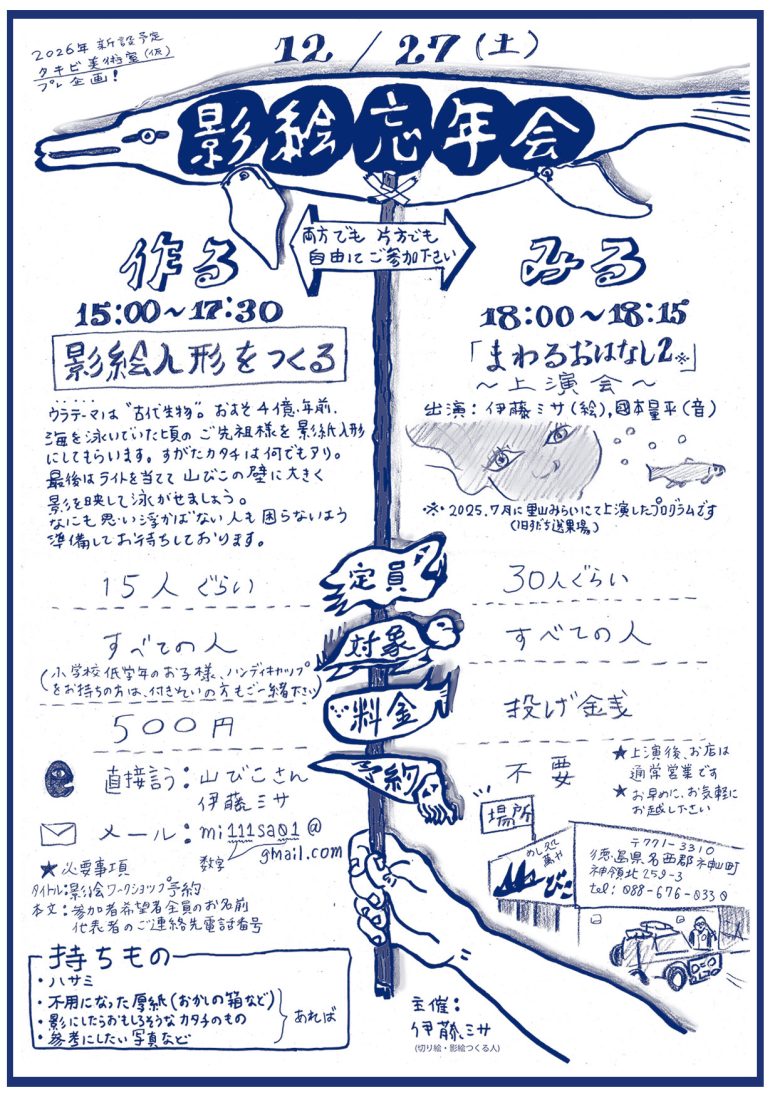 2026年 新設予定
タキビ美術室(仮)
プレ企画!
12/27(土)
影絵忘年会
両方でも 片方でも
自由にご参加下さい
作る
15:00〜17:30
影絵人形をつくる
ウラテーマは"古代生物"。おおよそ4億年前、
海を泳いでいた頃のご先祖様を影絵人形
にしてもらいます。すがたカタチは何でもアリ。
最後はライトを当てて山びこの壁に大きく
影を映して泳がせましょう。
なにも思い浮かばない人も困らないよう
準備してお待ちしております。
みる
18:00〜18:15
「まわるおはなし2※」
〜上演会〜
出演:伊藤ミサ(絵),國本量平(音)
※2025.7月に里山みらいにて上演したプログラムです
(旧すだち選果場)
定員
15人ぐらい
30人ぐらい
対象
すべての人
(小学校低学年のお子様、ハンディキャップ
をお持ちの方は、付きそいの方もご一緒下さい)
すべての人
料金
500円
投げ金銭
予約
直接言う:山びこさん
伊藤ミサ
メール:mi111sa01@
gmail.com
数字
★必要事項
タイトル:影絵ワークショップ予約
本文:参加者希望者全員のお名前
代表者のご連絡先電話番号
不要
★上演後、お店は
通常営業です
★お早めに、お気軽に
お越し下さい
場所
めし処
萬や
山びこ
〒771-3310
徳島県名西郡神山町
神領北259-3
tel:088-676-0330
持ちもの
・ハサミ
・不用になった厚紙(おかしの箱など)
・影にしたらおもしろそうなカタチのもの
・参考にしたい写真など
あれば
主催:
伊藤ミサ
(切り絵・影絵つくる人)